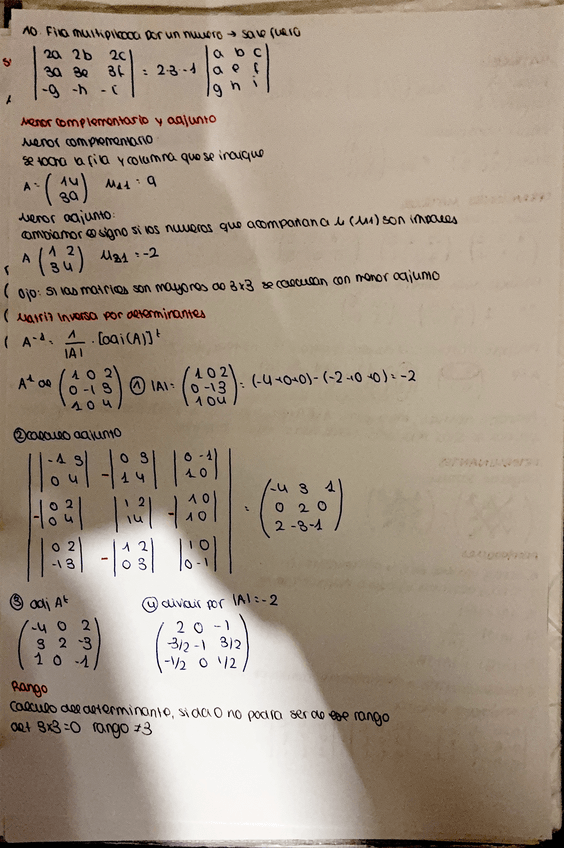 10. Fila multiplicada por un numero → sale fuera
| 2a 2b 2c |
| 3a 3e 3f | = 2·3·-1 | a b c |
| -g -h -i | | a e f |
| g h i |
Menor complementario y adjunto
Menor complementario:
Se tacha la fila y columna que se indique
A = ( 1 4 ) M11 = 9
( 3 9 )
Menor adjunto:
cambiamos el signo si los numeros que acompañan a M (M1) son impares
A ( 1 2 ) M21 = -2
( 3 4 )
Ojo: Si las matrices son mayores de 3x3 se calculan con menor adjunto
Matriz Inversa por determinantes
A⁻¹ = 1/|A| · [adj(A)]ᵗ
A⁻¹ de ( 1 0 2 ) ① |A| = ( 1 0 2 ) = (-4+0+0)-(-2+0+0) = -2
( 0 -1 3 ) ( 0 -1 3 )
( 1 0 4 ) ( 1 0 4 )
② calculo adjunto
| -1 3 | - | 0 3 | | 0 -1 |
| 0 4 | | 1 4 | | 1 0 |
- | 0 2 | | 1 2 | - | 1 0 | = ( -4 3 1 )
| 0 4 | | 1 4 | | 1 0 | ( 0 2 0 )
| 0 2 | - | 1 2 | | 1 0 | ( 2 -3 -1 )
| -1 3 | | 0 3 | | 0 -1 |
③ adj Aᵗ ④ dividir por |A| = -2
( -4 0 2 ) ( 2 0 -1 )
( 3 2 -3 ) ( -3/2 -1 3/2 )
( 1 0 -1 ) ( -1/2 0 1/2 )
Rango
Calculo del determinante, si da 0 no podra ser de ese rango
det 3x3=0 rango ≠3